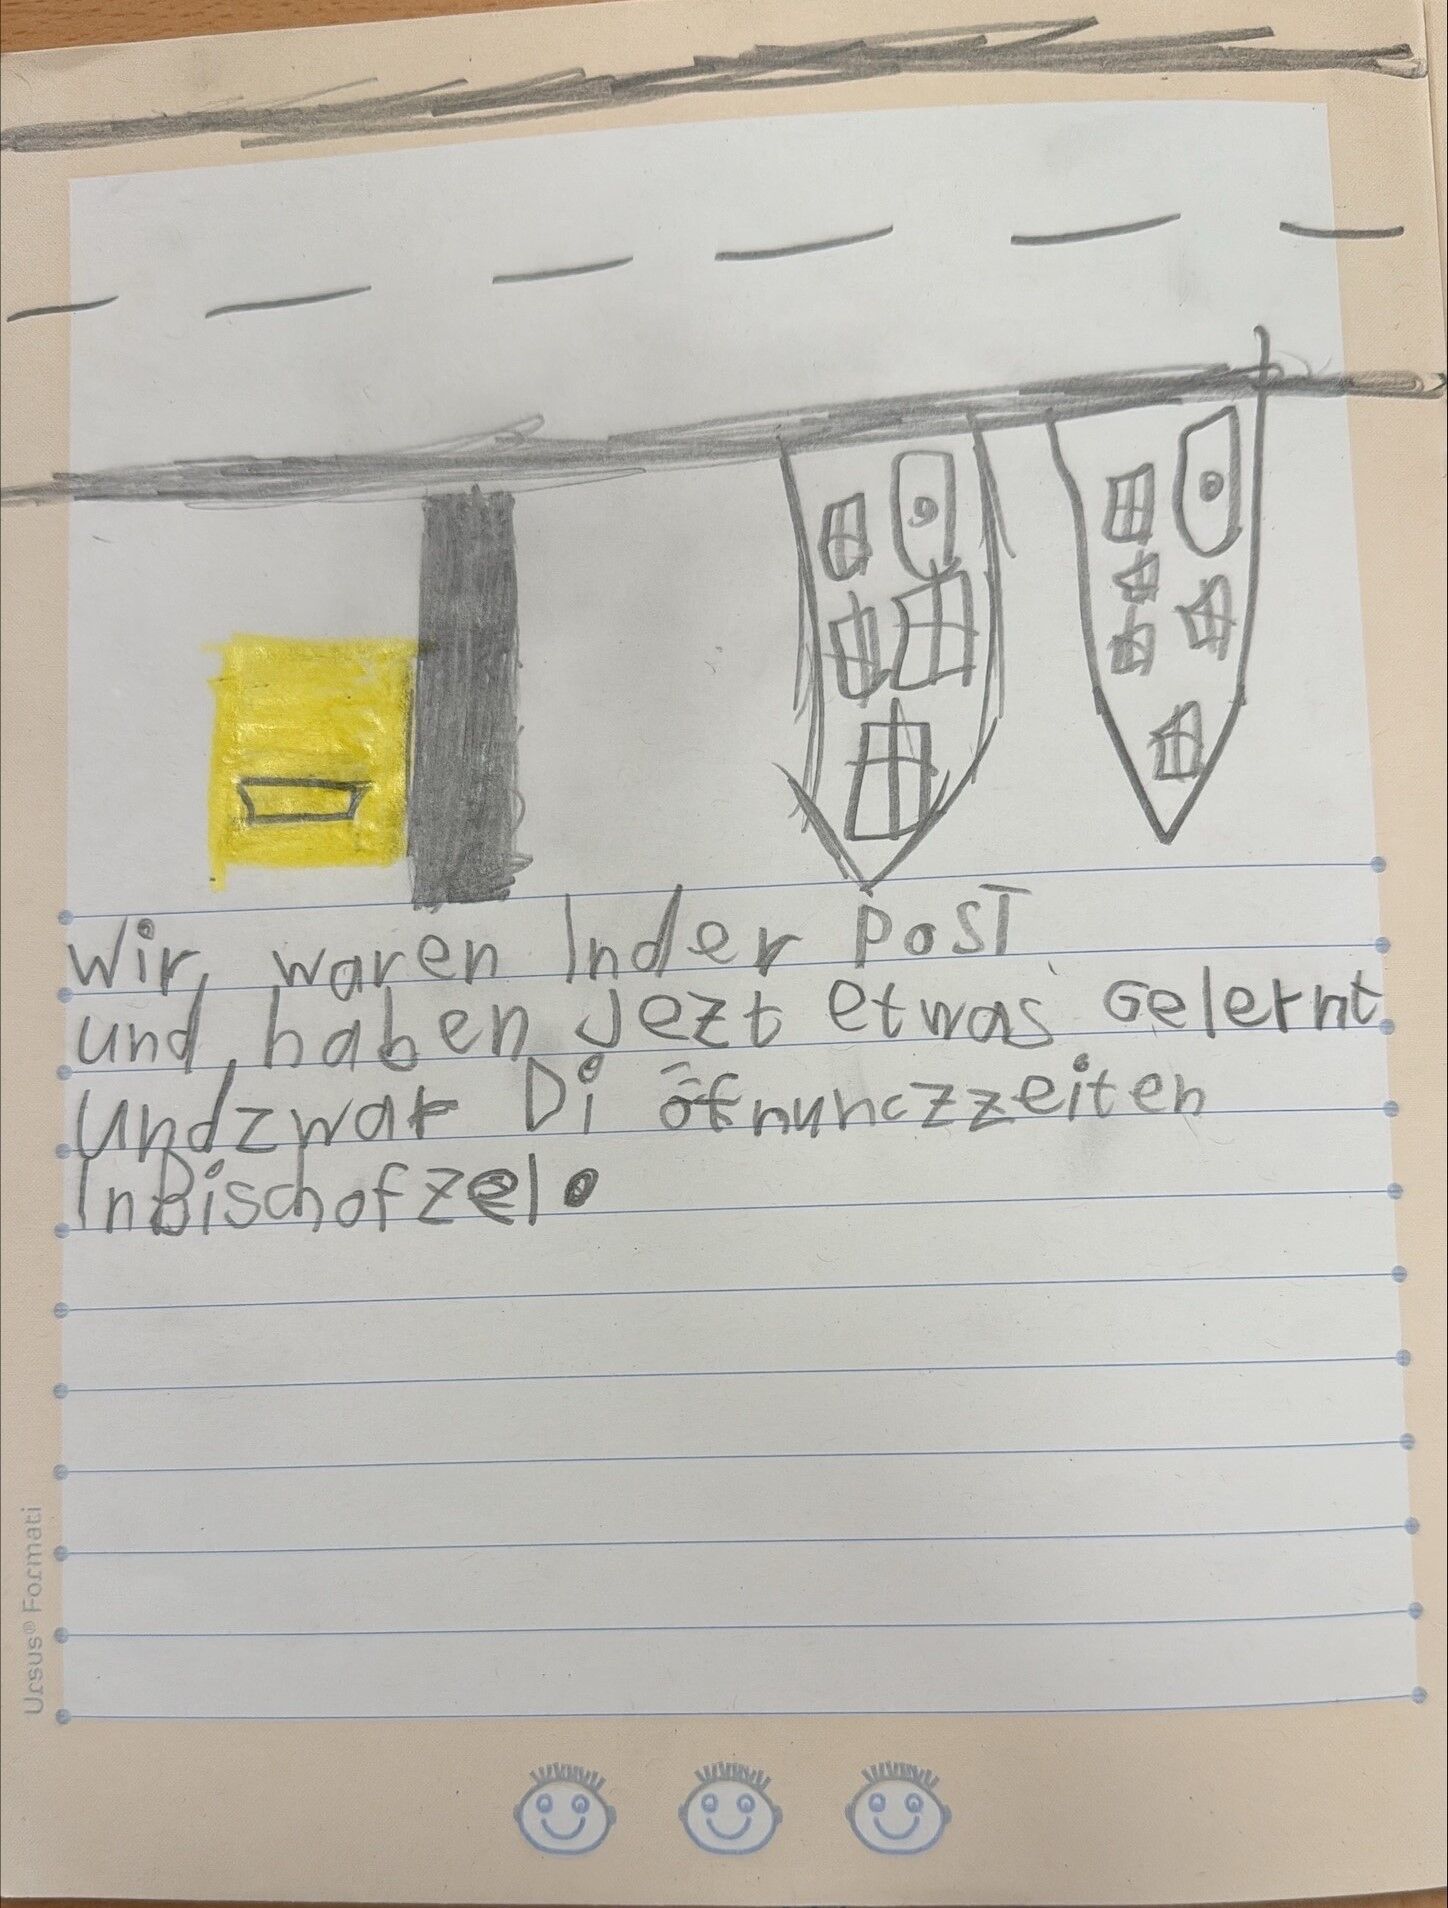 Wir waren Inder PosT
und haben Jezt etwas Gelernt
Undzwar Di öfnunczzeiten
InBischofzel.
Ursus® Formati